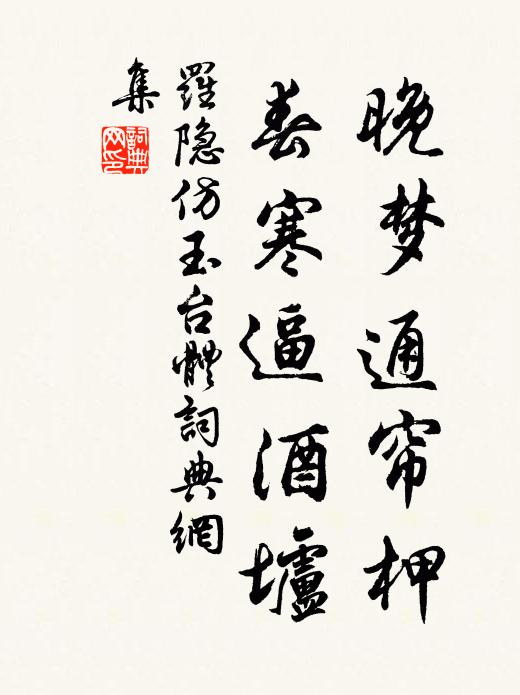 晚梦通帘柙
春寒逼酒壚
羅隐仿玉台體詞典網
集
詞典
网印